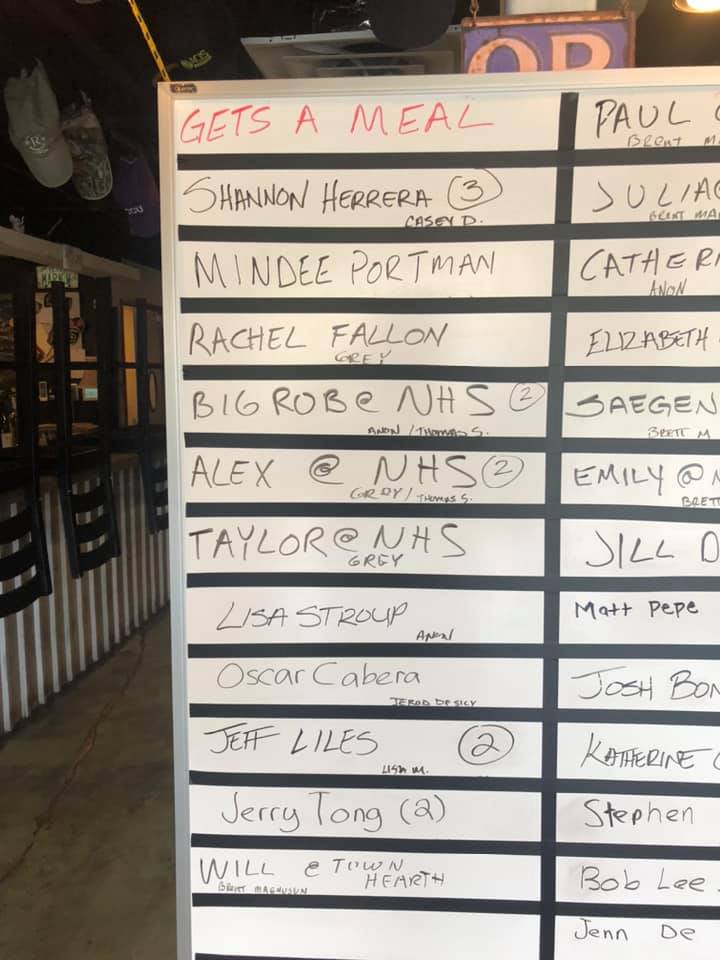 OR
GETS A MEAL
SHANNON HERRERA (3)
CASEY D.
MINDEE PORTMAN
RACHEL FALLON
GREY
BIG ROB @ NHS (2)
ANON / THOMAS S.
ALEX @ NHS (2)
GREY / THOMAS S.
TAYLOR @ NHS
GREY
LISA STROUP
ANON
Oscar Cabera
JEFF LILES (2)
LISA M.
Jerry Tong (2)
WILL @ TOWN
HEARTH
BRETT MAGNUSUN
PAUL
BRENT M
JULIA
CATHER
ANON
ELIZABETH
SAEGEN
BRETT M
EMILY @ N
BRETT
JILL D
Matt Pepe
JOSH BON
KATHERINE
Stephen
Bob Lee
Jenn De